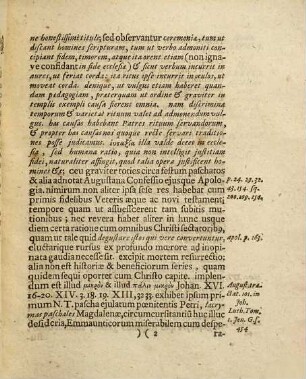 ne honestissimi titulo; sed observantur ceremonia, tum ut
distant homines scripturam, tum ut verbo admoniti con-
cipiant fidem, timorem, atque ita orent etiam (non igna-
ve confidant in fide ecclesiæ) & sicut verbum incurrit in
aures, ut feriat corda: ita ritus ipse incurrit in oculos, ut
moveat corda. denique, ut vulgus etiam habeat quan-
dam pedagogiam, præterquam ut ordine & graviter in
templis exempli causa fierent omnia. nam discrimina
temporum & varietas rituum valet ad admonendum vul-
gus. has causas habebant Patres rituum servandorum,
& propter has causas nos quoque recte servari traditio-
nes posse judicamus. illa valde decet in eccle-
sia, sed humana ratio, quia non intelligit justitiam
fidei, naturaliter affingit, quod talia opera justificent ho-
mines &c; ceu graviter toties circa festum paschatos
& alia adnotat Augustana Confessio ejusque Apolo-
gia. nimirum non aliter ipsa sese res habebat cum
primis fidelibus Veteris æque ac novi testamenti
tempore quam ut assuescerent tam subitis mu-
tionibus; nec revera habet aliter in hunc usque
diem certa ratione cum omnibus Christi sectatoribus,
quam ut tale quid degustare istos qui vere convertuntur,
elucharique rursus ex profundo mœrore ad inopi-
nata gaudia necesse sit. excipit mortem resurrectio:
alia non est historiæ & beneficiorum series, quam
quidem sequi oportet cum Christo capite. implen-
dum est illud μικρὸν & illud πάλιν μικρὸν Johan. XVI.
16-20. XIV. 3. 18. 19. XIII, 32. 33. exhibet ipsum pri-
mum N. T. pascha ejulatum pœnitentis Petri, lacry-
mas paschales Magdalenæ, circumcursitantiū huc illuc
desideria, Emmaunticorum miserabilem cum despe-
)( 2
ra-
p. 24. 29. 32.
43. 154. sq.
apol. p. 165.
Luth. Tom.
1. Jen. G. f.
454